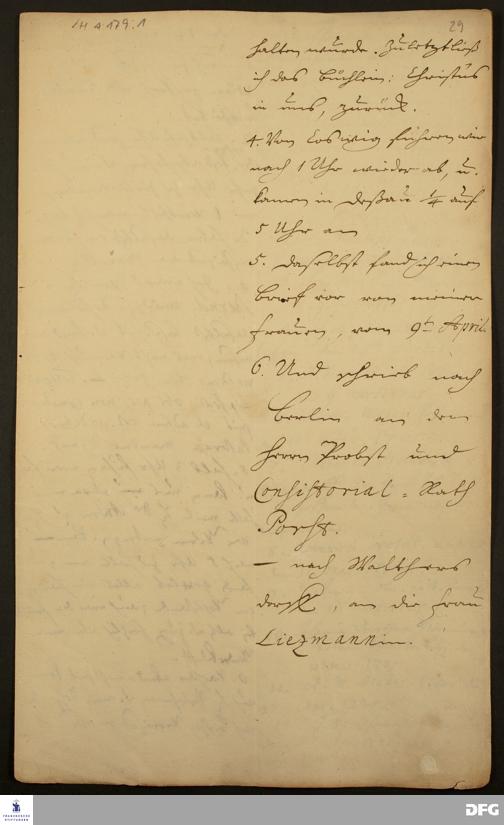 /H A 179:1
29
halten wurde. Zuletzt ließ
ich das Büchlein: Christus
in uns, zurück.
4. Von Coswig fuhren wir
nach 1 Uhr wieder ab, u.
kamen in Deßau ¼ auf
5 Uhr an
5. Daselbst fand ich einen
Brief vor von meiner
Frauen, vom 9t. April.
6. Und schrieb nach
Berlin an den
Herrn Probst und
Consistorial-Rath
Porst.
– nach Walthers
dorff, an die Frau
Liezmannin.
FRANCKESCHE
STIFTUNGEN
DFG